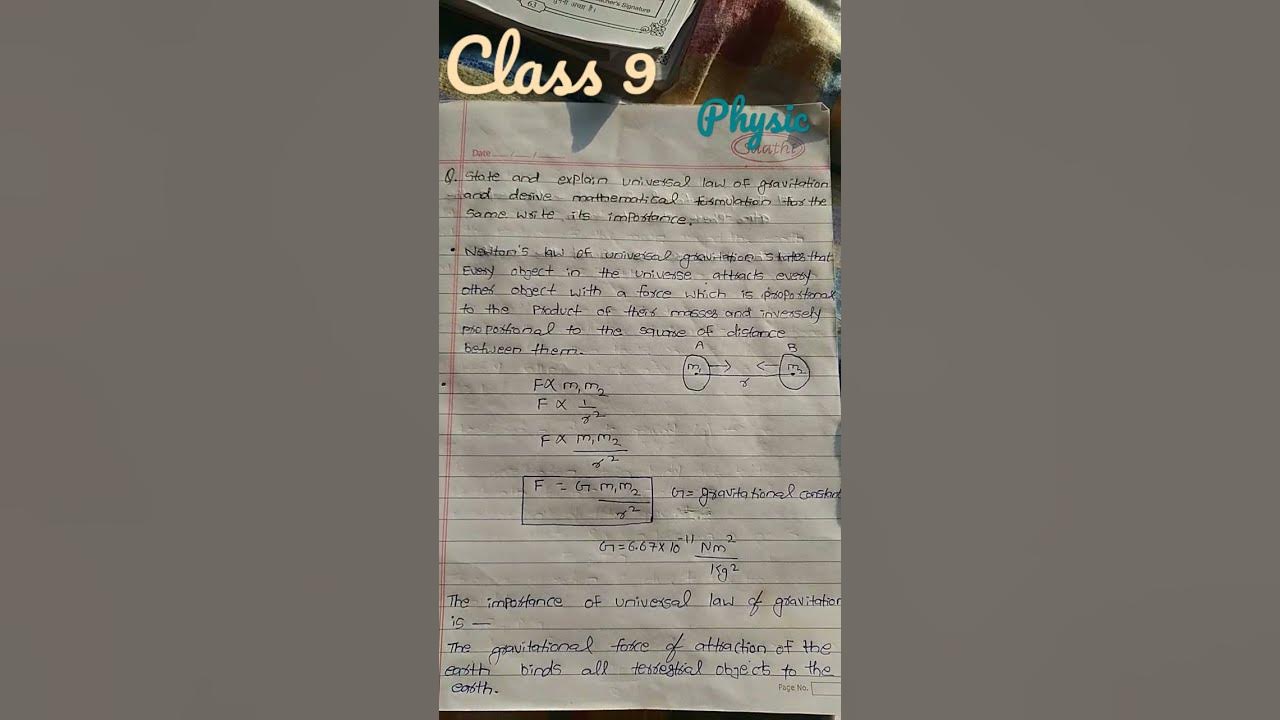 सुनना अच्छा है।
Teacher's Signature
63
Class 9
Physic
Mathe
Date
Q. State and explain universal law of gravitation
and derive mathematical formulation for the
same write its importance.
• Newton's law of universal gravitation states that
Every object in the universe attracts every
other object with a force which is proportional
to the product of their masses and inversely
proportional to the square of distance
between them.
A B
m1 m2
r
F ∝ m1m2
F ∝ 1/r²
F ∝ m1m2/r²
F = G m1m2/r² G = gravitational constant
G = 6.67 × 10⁻¹¹ Nm²/Kg²
The importance of universal law of gravitation
is —
The gravitational force of attraction of the
earth binds all terrestrial objects to the
earth.
Page No.